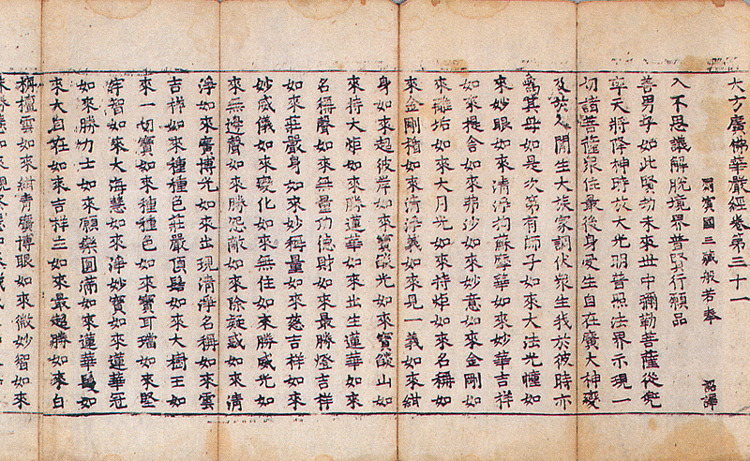 大方廣佛華嚴經卷第三十一
罽賓國三藏般若奉 詔譯
入不思議解脫境界普賢行願品
善男子如此賢劫未來世中彌勒菩薩從兜
率天將降神時放大光明普照法界示現一
切諸菩薩眾住最後身受生自在廣大神變
及於人間生大族家調伏眾生我於彼時亦
為其母如是次第有師子如來大法光幢如
來妙眼如來清淨拘蘇摩華如來妙華吉祥
如來提舍如來弗沙如來妙意如來金剛如
來離垢如來大月光如來持炬如來名稱如
來金剛楯如來清淨義如來見一義如來紺
身如來超彼岸如來寶燄光如來寶燄山如
來持大炬如來勝蓮華如來出生蓮華如來
名稱聲如來無量功德財如來最勝燈吉祥
如來莊嚴身如來妙稱量如來慈吉祥如來
妙威儀如來變化如來無住如來勝威光如
來無邊聲如來勝忍敵如來除疑惑如來清
淨如來廣博光如來出現清淨名稱如來雲
吉祥如來種種色莊嚴頂髻如來大樹王如
來一切寶如來種種色如來寶耳璫如來堅
牢智如來大海慧如來淨妙寶如來蓮華冠
如來勝力士如來願樂圓滿如來蓮華髻如
來大自在如來吉祥王如來最超勝如來白
栴檀雲如來紺青廣博眼如來微妙智如來